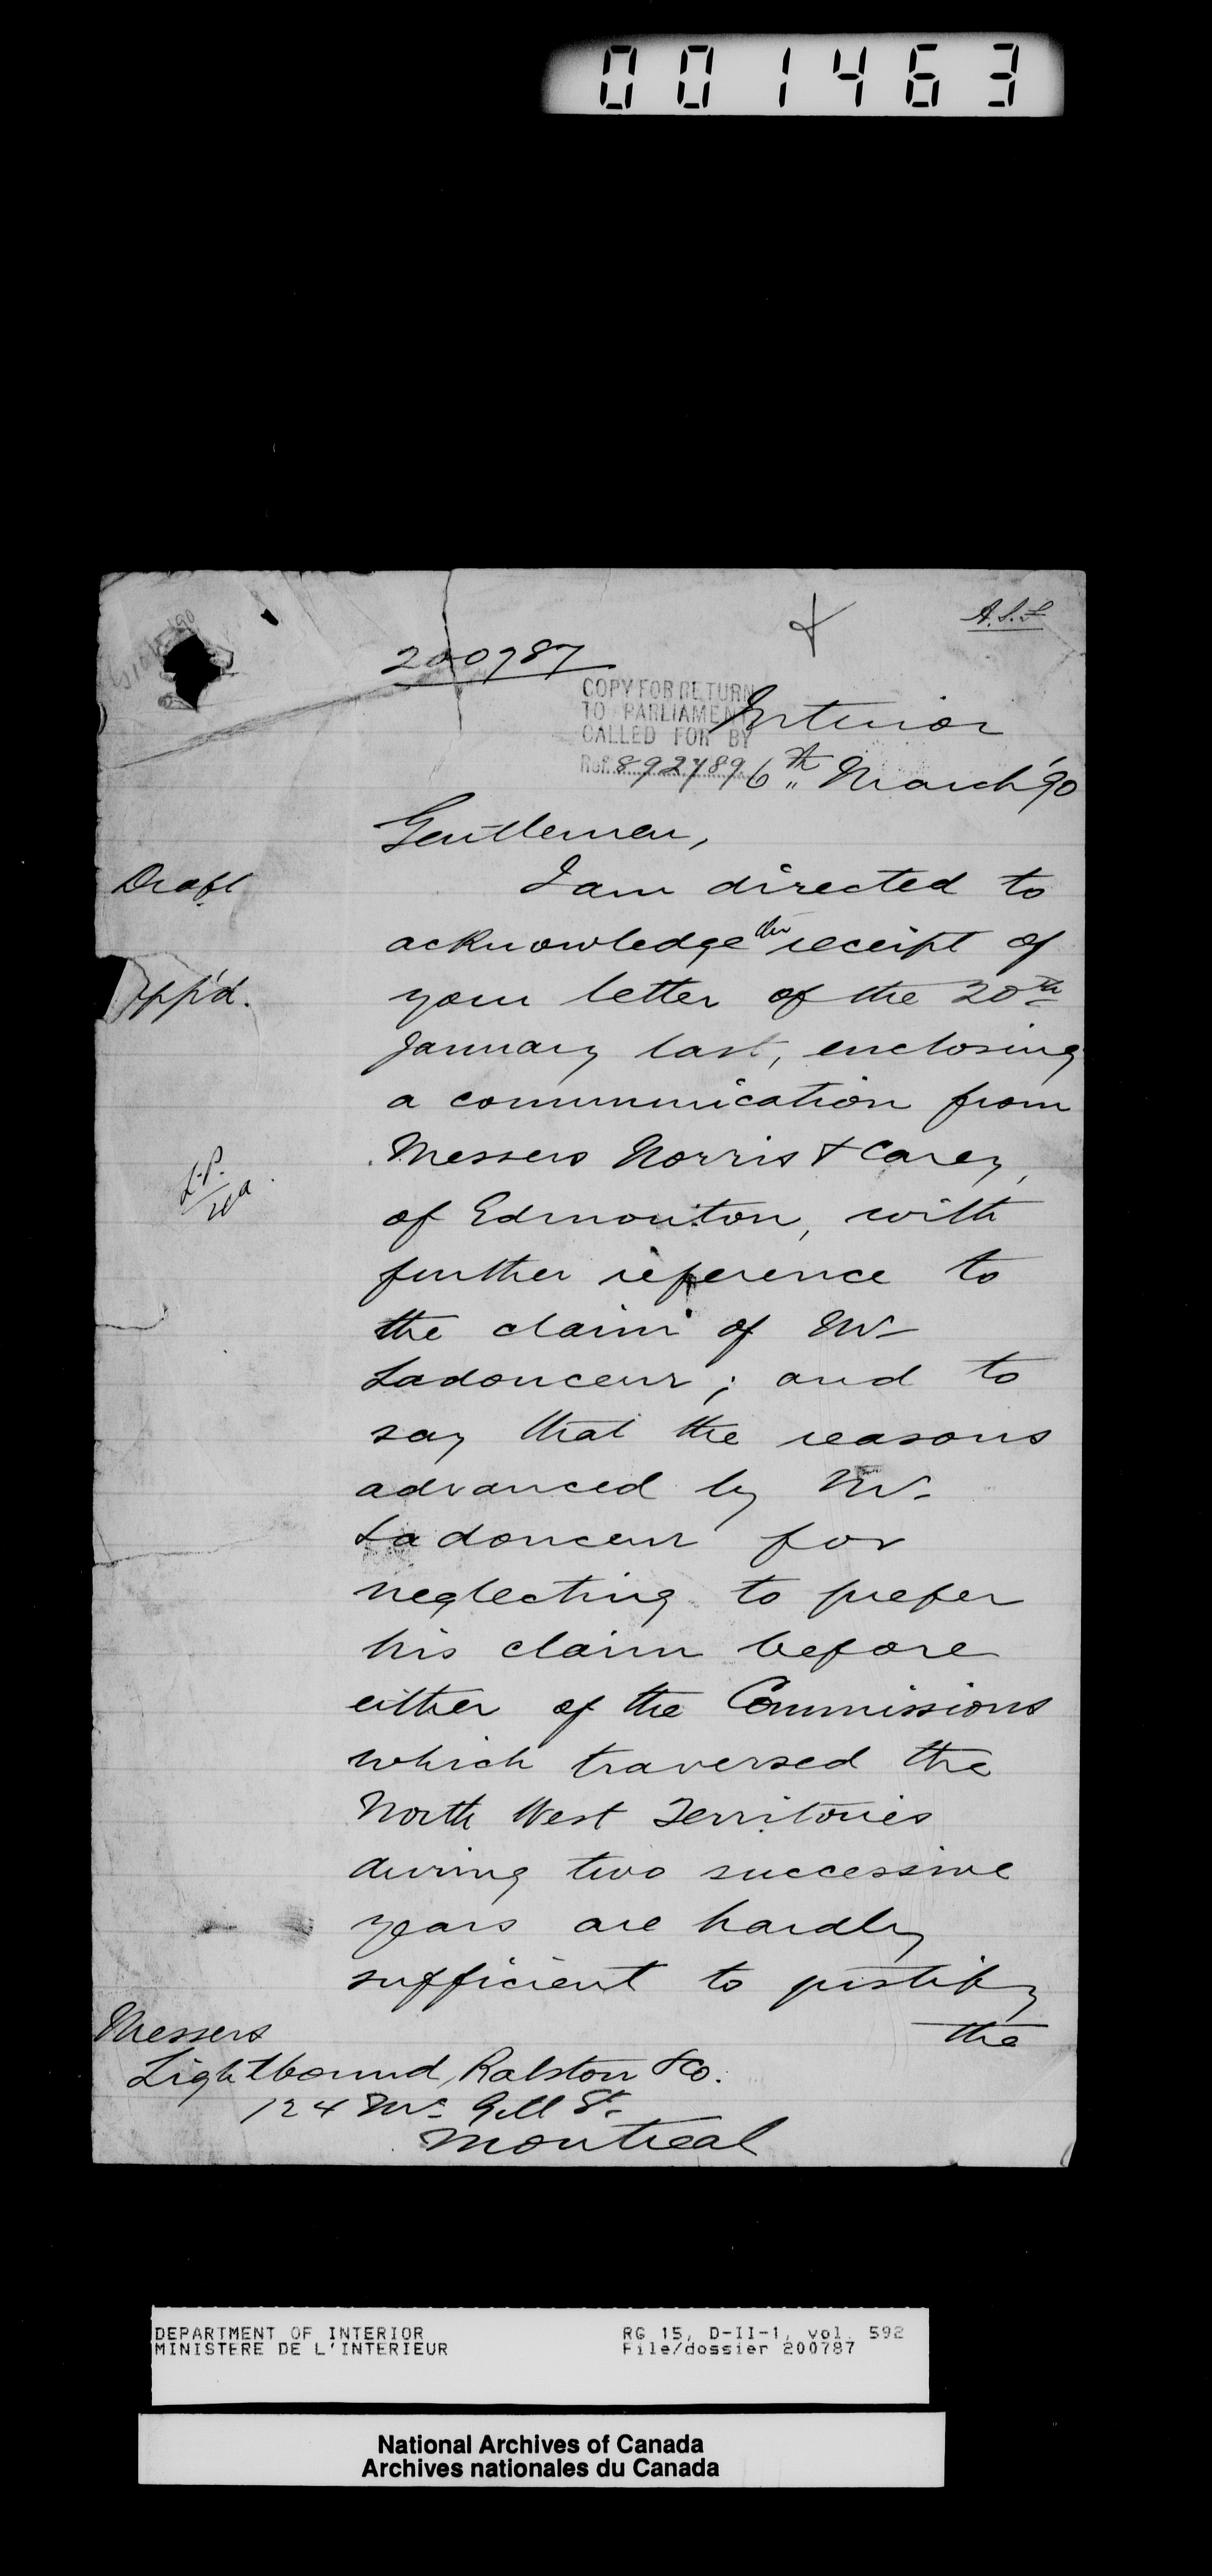 001463
A.S.S
200787
COPY FOR RETURN
TO PARLIAMENT
CALLED FOR BY
Ref. 892789
Interior
6th March '90
Gentlemen,
Draft
I am directed to
acknowledge the receipt of
App'd.
your letter of the 20th
January last, enclosing
a communication from
Messers Norris & Carey,
L.P.
of Edmonton, with
further reference to
the claim of Mr
Ladouceur; and to
say that the reasons
advanced by Mr.
Ladouceur for
neglecting to prefer
his claim before
either of the Commissions
which traversed the
North West Territories
during two successive
years are hardly
sufficient to justify
the
Messers
Lightbound, Ralston & Co.
124 Mc Gill St.
Montreal
DEPARTMENT OF INTERIOR
MINISTERE DE L'INTERIEUR
RG 15, D-II-1, vol. 592
File/dossier 200787
National Archives of Canada
Archives nationales du Canada